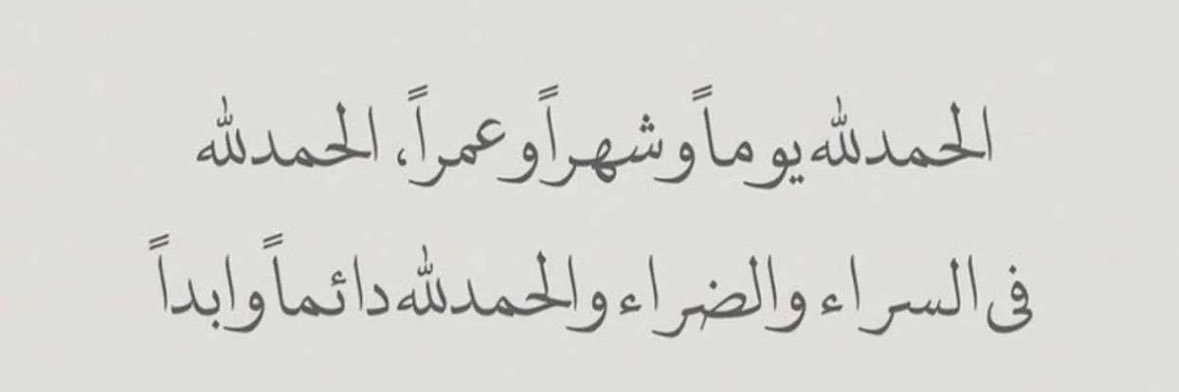 الحمدلله يوماً وشهراً وعمراً، الحمدلله
فى السراء والضراء والحمدلله دائماً وابداً